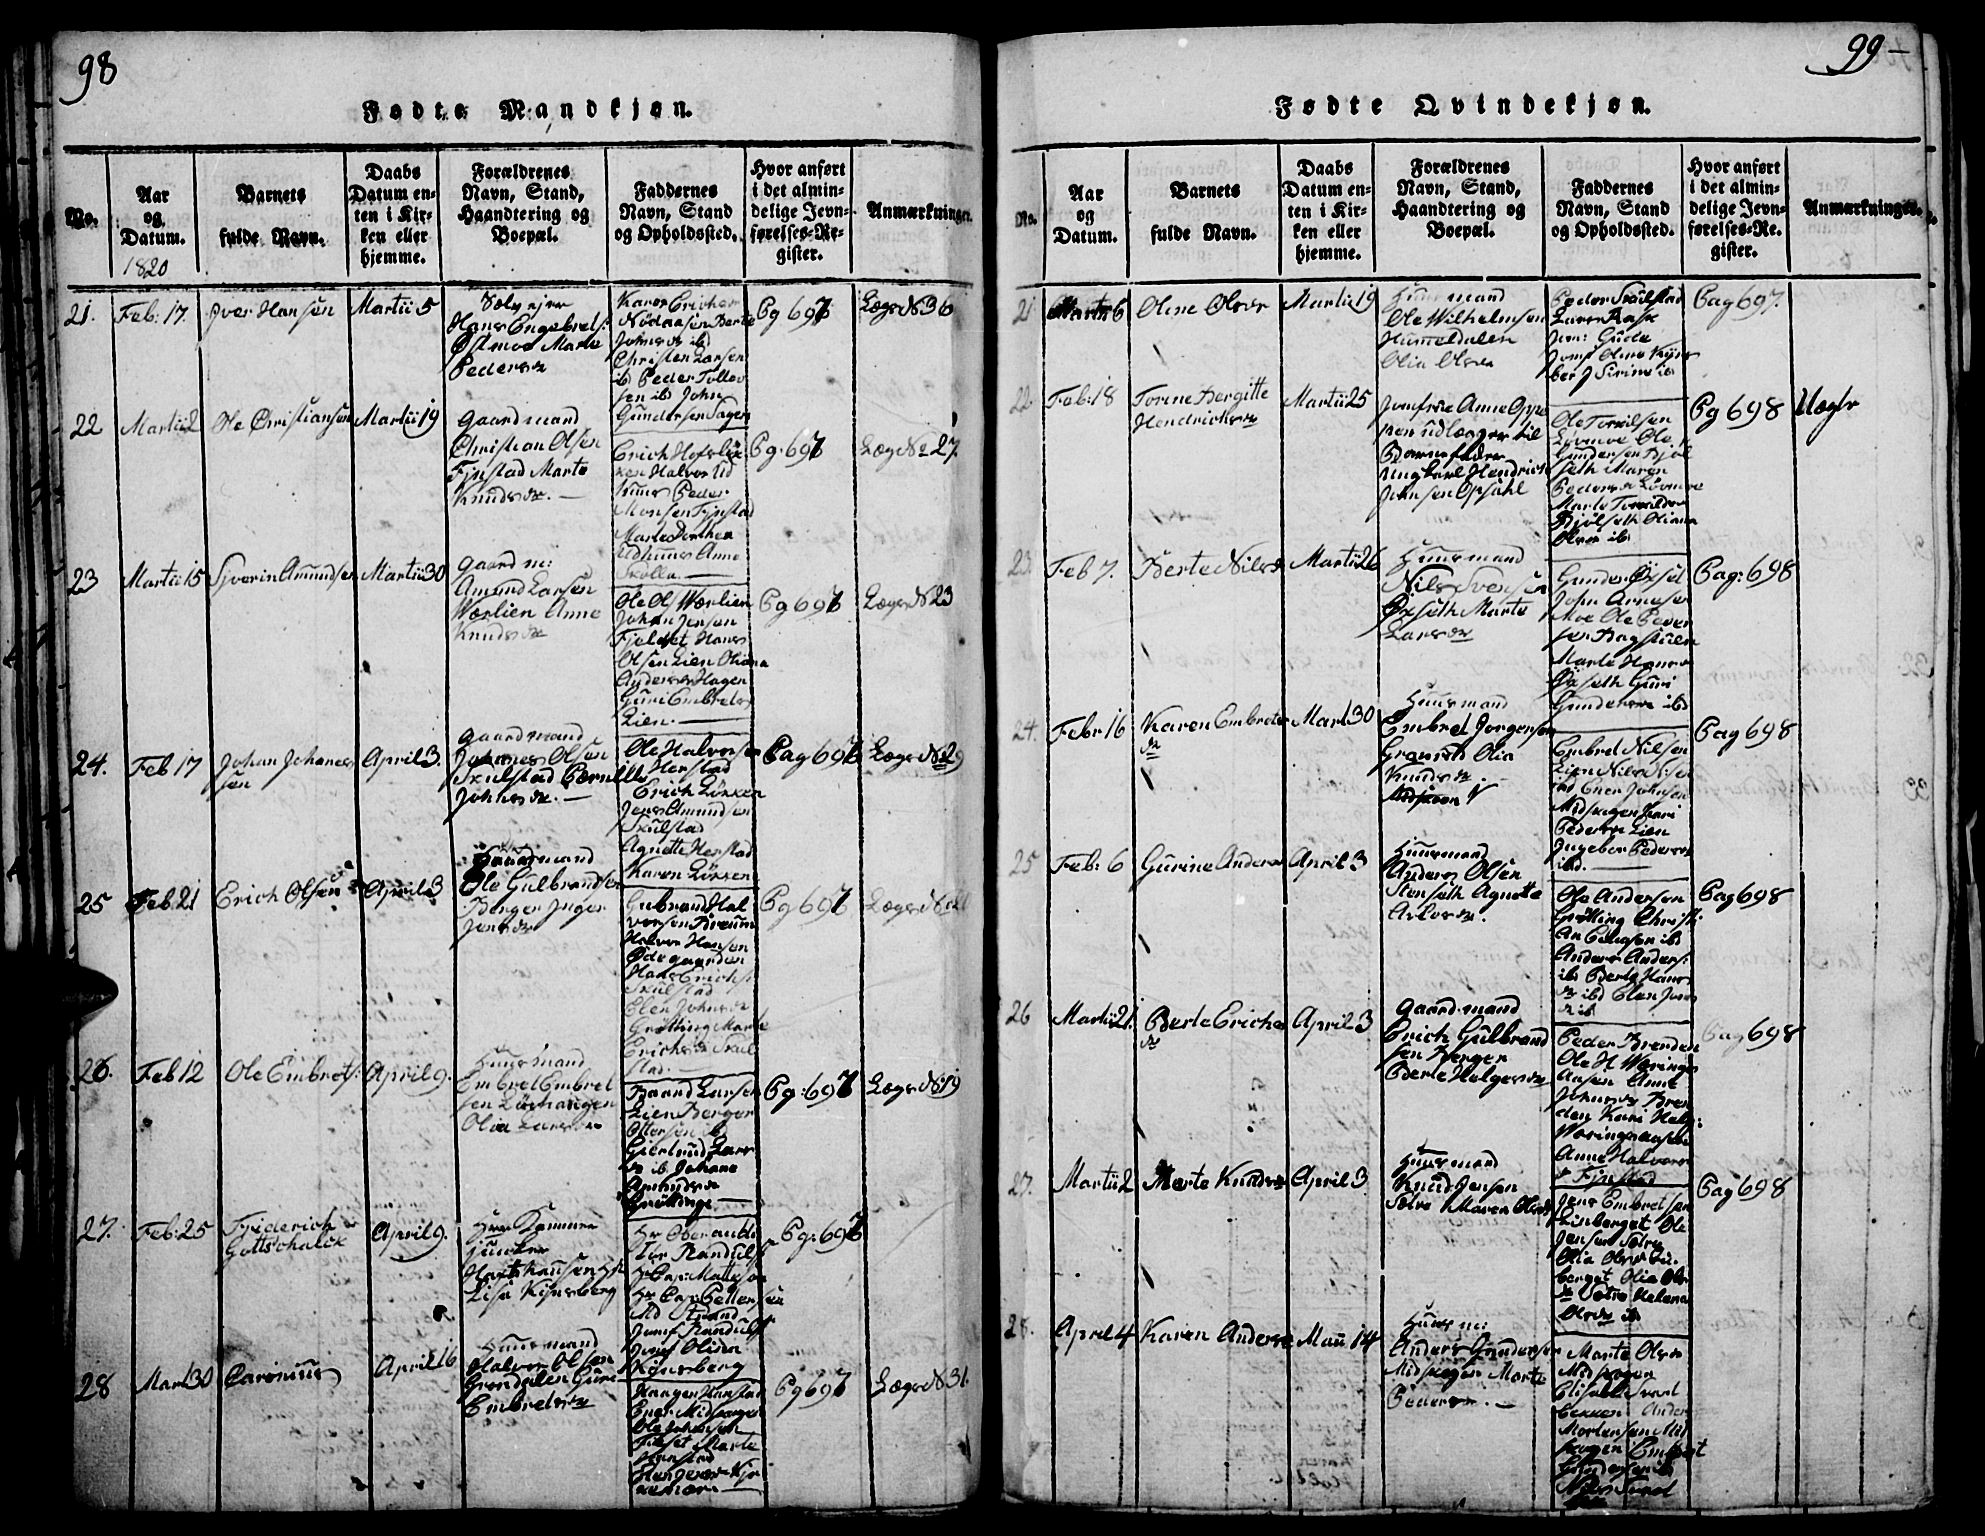 98
Fødte Mandkjøn.
No.
Aar
og
Datum.
1820
Barnets
fulde Navn.
Daabs
Datum en-
ten i Kir-
ken eller
hjemme.
Forældrenes
Navn, Stand,
Haandtering og
Boepæl.
Faddernes
Navn, Stand
og Opholdssted.
Hvor anført
i det almin-
delige Jevn-
førelses-Re-
gister.
Anmærkninger.
21.
Feb: 17.
Iver Hansen
Martii 5
Hans Engebrets:
Østmoe Marte
Pedersdr
Christen Larsen
ib Peder Tollev
sen ib John
Gundersen Hagen
Pg 697
Læges N 36
22
Martii 2
Ole Christiansen
Martii 19
Gaardmand
Christian Olsen
Fjnstad Marte
Knudsdr. —
Peder
Monsen Fjnstad
Marte Dorthea
Udhuus Anne
Skolla. —
Pg: 697
Læg No 27.
23
Martii 15
Syverin Amundsen
Martii 30
Gaardm:
Amund Larsen
Wærlien Anne
Knudsdr
Ole Ols Wærlien
Johan Jensen
Fjeldset Hans
Olsen Lien Oliana
Anders Hagen
Guri Embretsdr
Lien. —
Pg 697
Læges N 23
24.
Feb 17
Johan Johanes
sen
April 3.
Gaardmand
Johannes Olsen
Skulstad Pernille
Johnsdr. —
Ole Halvorsen
Herstad
Erich Løkken
Jens Amundsen
Skulstad
Agnette Herstad
Karen Løkken
Pag 697
Læges No 29
25
Feb 21
Erich Olsen
April 3
Gaardmand
Ole Gulbrandsen
Berger Inger
Jensdr
Gubrand Hal
vorsen Braenn
Halvor Hansen
Ødegaarden
Hans Erichs:
Skulstad
Elen Johnsdr
Grøtting Marte
Erichsdr Skul
stad. —
Pg 697
26.
Feb 12
Ole Embrets:
April 9.
Huusmand
Embret Embret
sen Løvhaugen
Olia Larsdr
Baard Larsen
Lien Berger
Ottersen ib
Giertrud Lars
dr ib Johane
Amundsdr
Grøttinge —
Pg: 697
Læges N 19
27.
Feb: 25
Friderich
Gottschalck
April 9.
Hr Kammer
Junker
Haxthausen
Lise Kynsberg
Hr Oberauditør
Randulff
Hr Cap: Matheson
Hr Cap Pettersen
Strand
Jomf Randulff
Jomf Olina
Kynsberg
Pg: 697
28
Mart 30
Paronuus
April 16
Huusmand
Halvor Olsen
Grøndalen Guri
Embretsdr
Haagen Hanstad
Ener Midskogen
Ole Johansen
Fieset Marte
Hanstad
Pg 697
Læges N 31.
99 —
Fødte Qvindekjøn.
No.
Aar
og
Datum.
Barnets
fulde Navn.
Daabs
Datum en-
ten i Kir-
ken eller
hjemme.
Forældrenes
Navn, Stand,
Haandtering og
Boepæl.
Faddernes
Navn, Stand
og Opholdssted.
Hvor anført
i det almin-
delige Jevn-
førelses-Re-
gister.
Anmærkninger.
21.
Martii 6
Oline Olsdr
Martii 19
Huusmand
Ole Wilhelmsen
Hummeldalen
Olia Olsdr
Peder Skulstad
Lars Rask
Jom: Gude
Jomf Oline Kyns
berg J Sirine ib
Pag 697.
22.
Feb: 18
Torine Bergitte
Hendrichsdr
Martii 25
Jomfrue Anne Oppe
gen udlægger til
Barnefader
Ungkarl Hendrich
Johnsen Opsahl
Ole Torkilsen
Løvmoe Ole
Gundersen Bjøl
seth Maren
Pedersdr Løvmoe
Marte Torkildsdr
Bjølseth Oliana
Olsdr ib
Pg 698
Uægte
23.
Feb 7.
Berte Nilsdr
Martii 26
Huusmand
Nils Svensen
Øxseth Marte
Larsdr
Gunder Øxset
John Arnesen
Moe Ole Peder
sen Bagstuen
Marte Hansdr
Øxseth Guri
Gundersdr ibd
Pag: 698
24.
Febr 16
Karen Embrets
dr
Mart 30
Huusmand
Embret Jørgensen
Granrud Olia
Knudsdr. —
Midskoen
Embret Nilsen
Lien Nils Nilsen
ibd Ener Johnsen
Midskogen Kari
Pedersdr Lien
Ingebor Pedersdr
ibd. —
Pag 698
25
Feb: 6
Gurine Andersdr
April 3
Huusmand
Anders Olsen
Stenseth Agnette
Axlsdr.
Ole Andersen
Grøtting Christi
an ibd
Anders Anders:
ib Berte Hans
dr ibd Elen Jons
dr ib
Pag 698
26
Martii 21.
Berte Erichs
dr
April 3
Gaardmand
Erich Gulbrand
sen Berger
Berte Helgesdr
Peder Brenden
Ole H Wæringe
Aasen Anne
Johnsdr Bren
den Kari Helg:
Wæringsaasen
Anne Halvors
dr Fjnstad
Pag 698
27.
Martii 2
Marte Knudsdr
April 3
Huusmand
Knud Jensen
Sætre Maren Olsdr
Jens Embretsen
Linberget Ole
Jensen Sætre
Olia Olsdr Lin
berget Olia Ols
dr Sætre Helena
Olsdr ib
Pag 698
28.
April 4
Karen Andersdr
Maii 14
Huusm:
Anders Gundersen
Midskogen Marte
Pedersdr. —
Marte Olsdr
Midskogen
Elisabet
bekken Anders
Mortensen Mid
skogen Embret
Gundersen ib